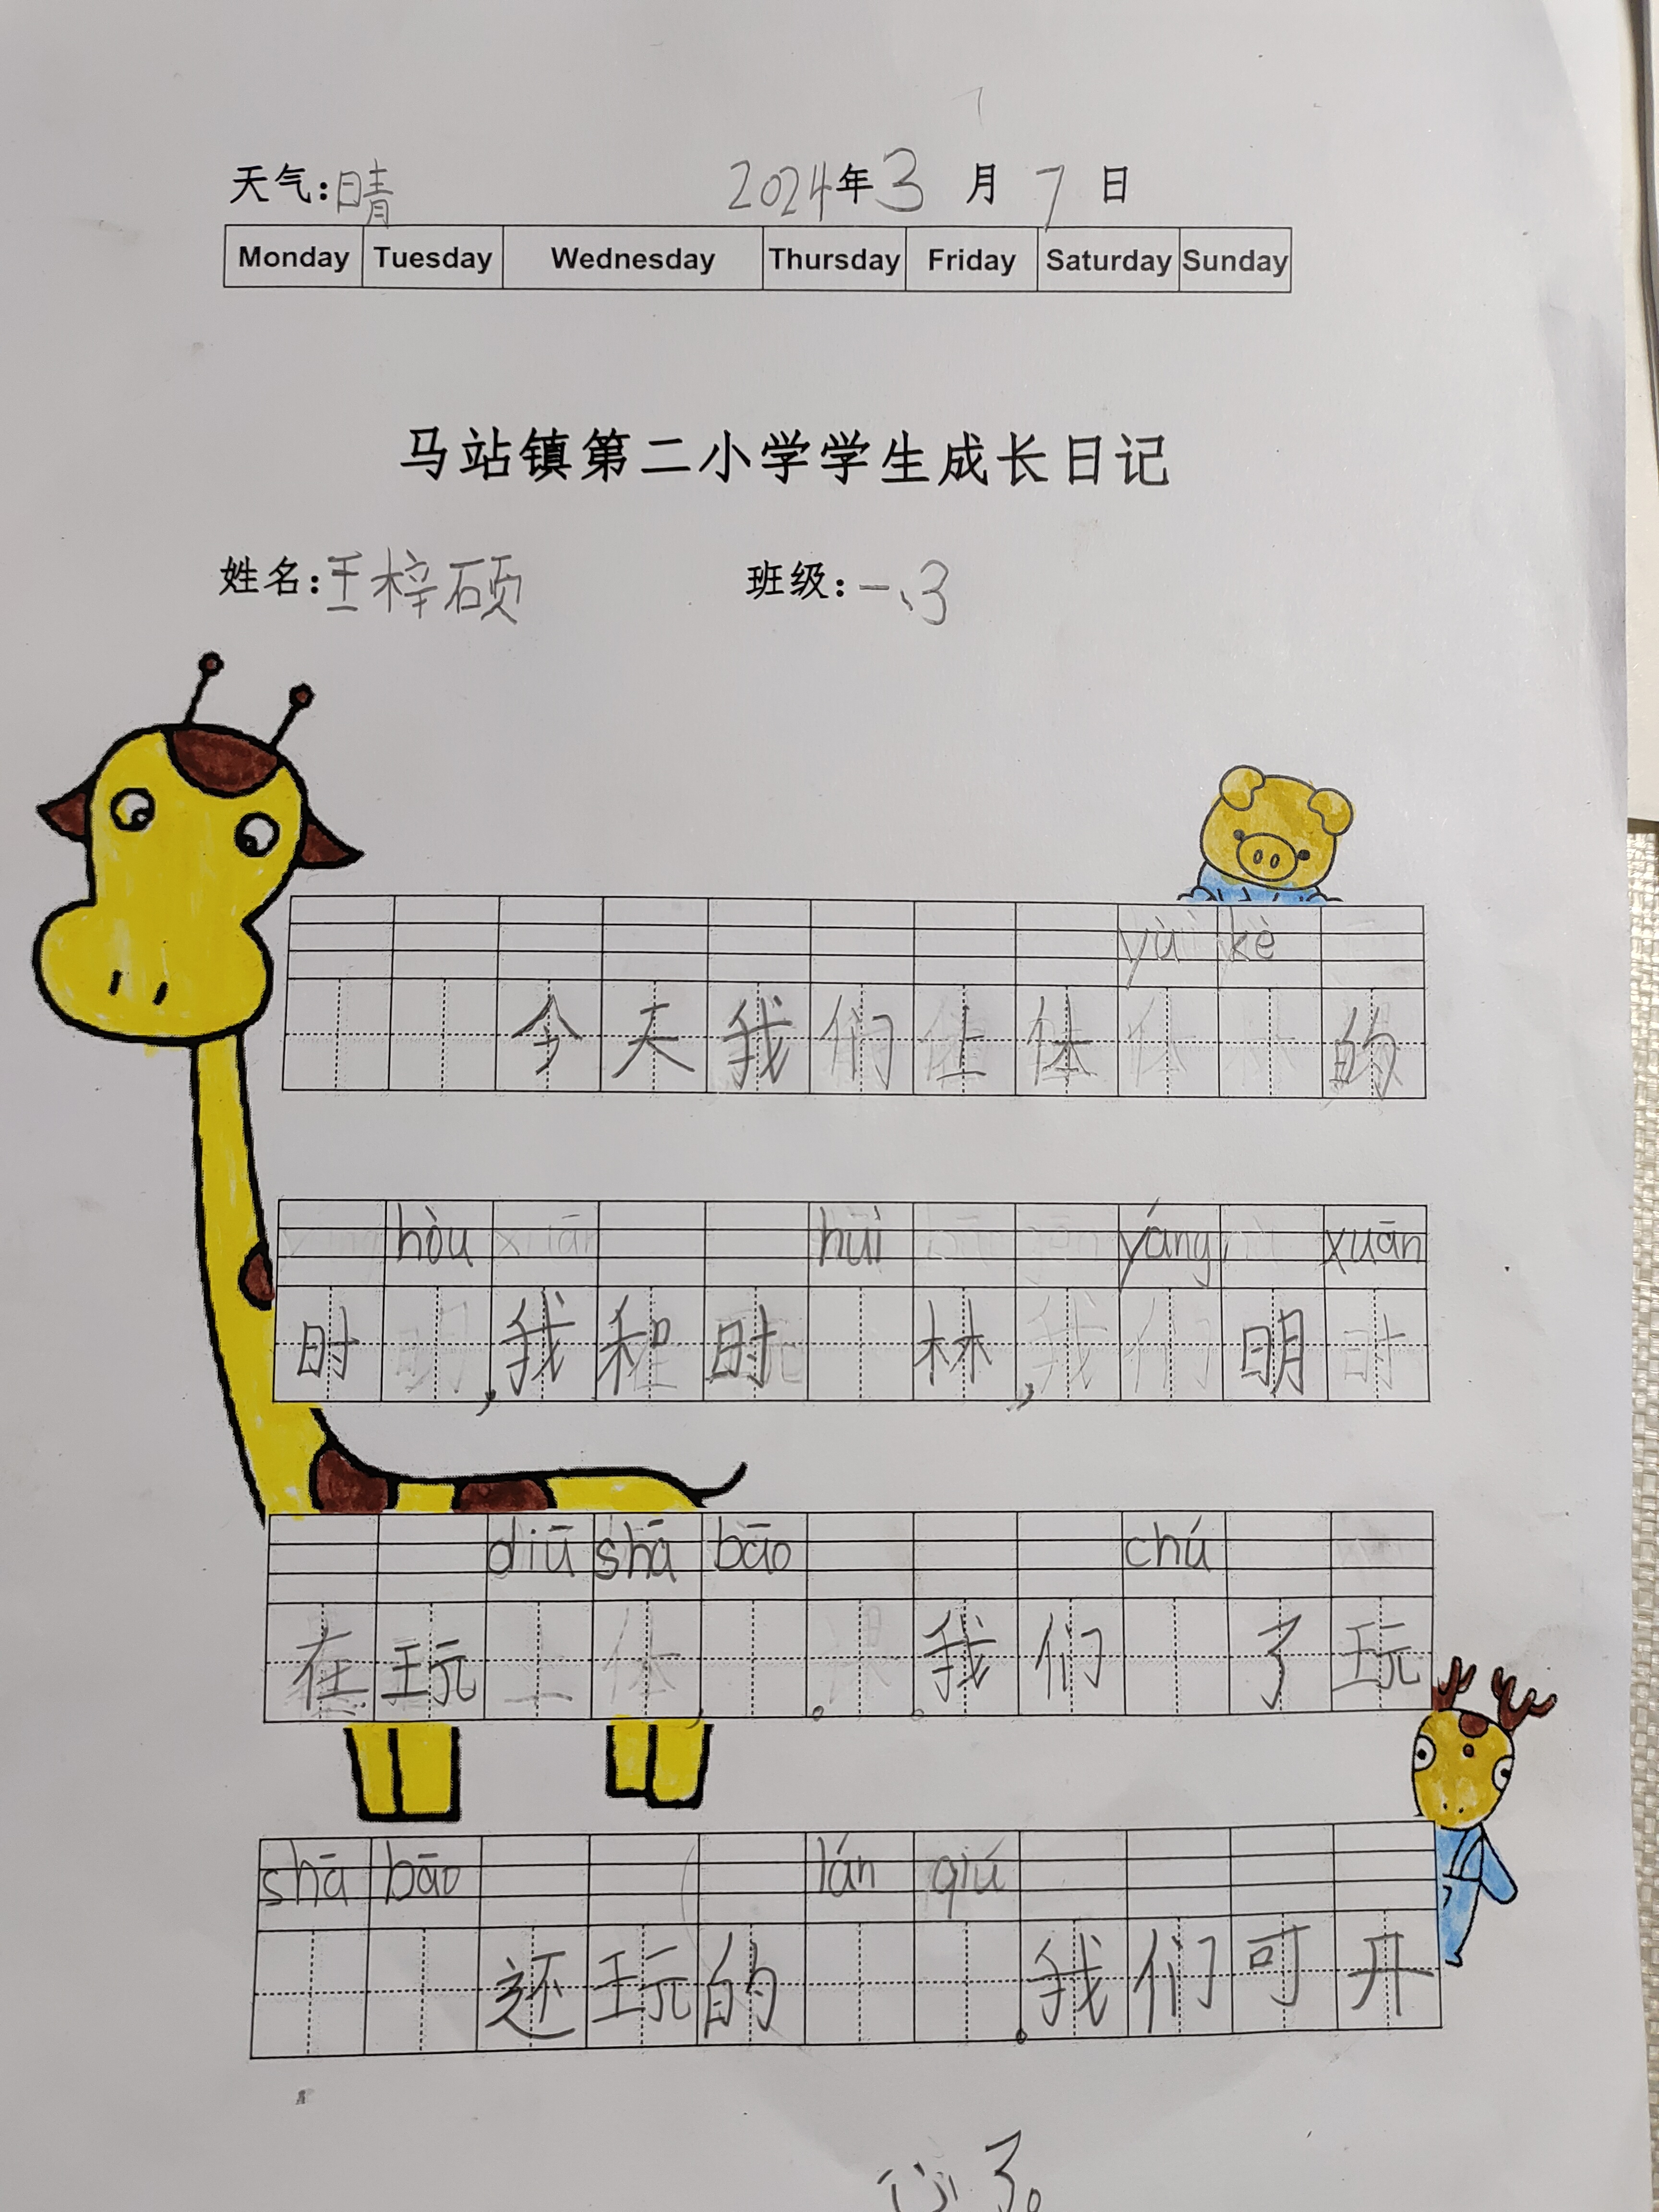 天气:晴 2024年3月7日
Monday Tuesday Wednesday Thursday Friday Saturday Sunday
马站镇第二小学学生成长日记
姓名:王梓硕 班级:一、3
yù kè
今天我们上体的
hòu huī yáng xuān
时,我和时林,明
diū shā bāo chú
在玩。我们了玩
shā bāo lán qiú
还玩的。我们可开
心了。